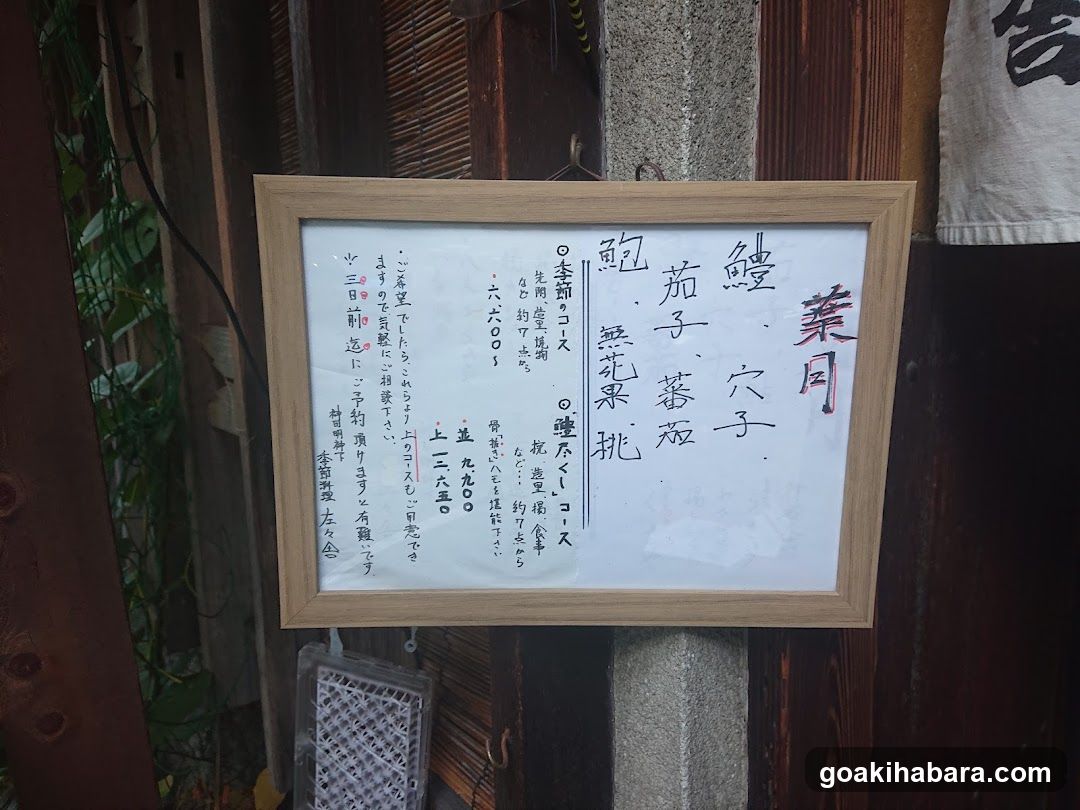 葉月
鱧、穴子、
茄子、蕃茄
鮑、無花果、桃
⊙季節のコース
先附、造里、焼物
など 約7点から
・六、六〇〇〜
⊙「鱧尽くし」コース
椀、造里、揚、食事
など… 約7点から
骨「抜き」ハモを堪能下さい
並 九、九〇〇
上 一二、六五〇
・ご希望でしたら、これらより上のコースもご用意でき
ますので気軽にご相談下さい。
※三日前迄にご予約頂けますと有難いです
神田明神下
季節料理 左々舎
舎
goakihabara.com